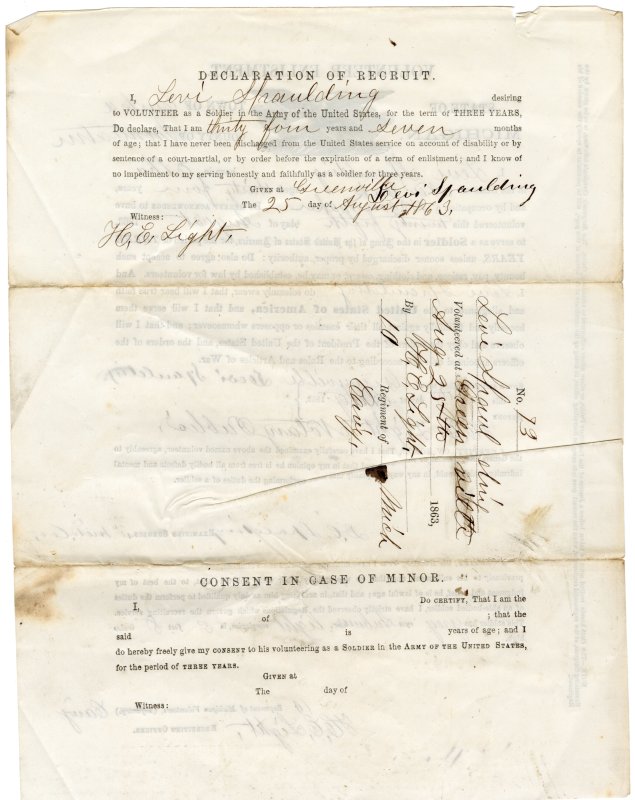 DECLARATION OF RECRUIT.
I, Levi Spaulding desiring
to VOLUNTEER as a Soldier in the Army of the United States, for the term of THREE YEARS,
Do declare, That I am thirty four years and seven months
of age; that I have never been discharged from the United States service on account of disability or by
sentence of a court-martial, or by order before the expiration of a term of enlistment; and I know of
no impediment to my serving honestly and faithfully as a soldier for three years.
GIVEN at Greenville Levi Spaulding
The 25 day of August 1863,
Witness:
H. E. Light,
No. 73
Levi Spaulding
Volunteered at Greenville
Aug. 25th 1863,
By H. E. Light,
10 Regiment of Mich
Cavy.
CONSENT IN CASE OF MINOR.
Do CERTIFY, That I am the
I, of ; that the
said is years of age; and I
do hereby freely give my CONSENT to his volunteering as a SOLDIER in the ARMY OF THE UNITED STATES,
for the period of THREE YEARS.
GIVEN at
The day of
Witness: